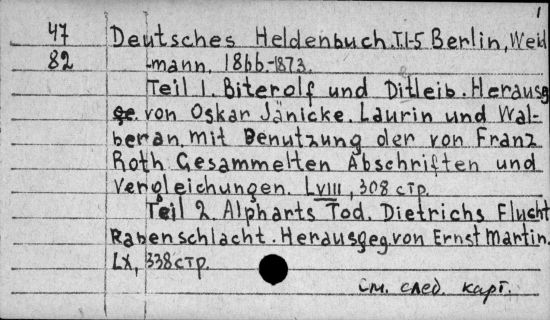 1
47 Deutsches Heldenbuch.T.1-5 Berlin, Weid
82 -mann, 1866-1873.
Teil 1. Biterolf und Ditleib. Herausg
von Oskar Jänicke. Laurin und Wal-
beran. mit Benutzung der von Franz
Roth Gesammelten Abschriften und
Vergleichungen. LVIII, 308 стр.
Teil 2. Alpharts Tod. Dietrichs Flucht
Rabenschlacht. Herausgeg. von Ernst Martin.
LX, 338 стр.
см. след. карт.